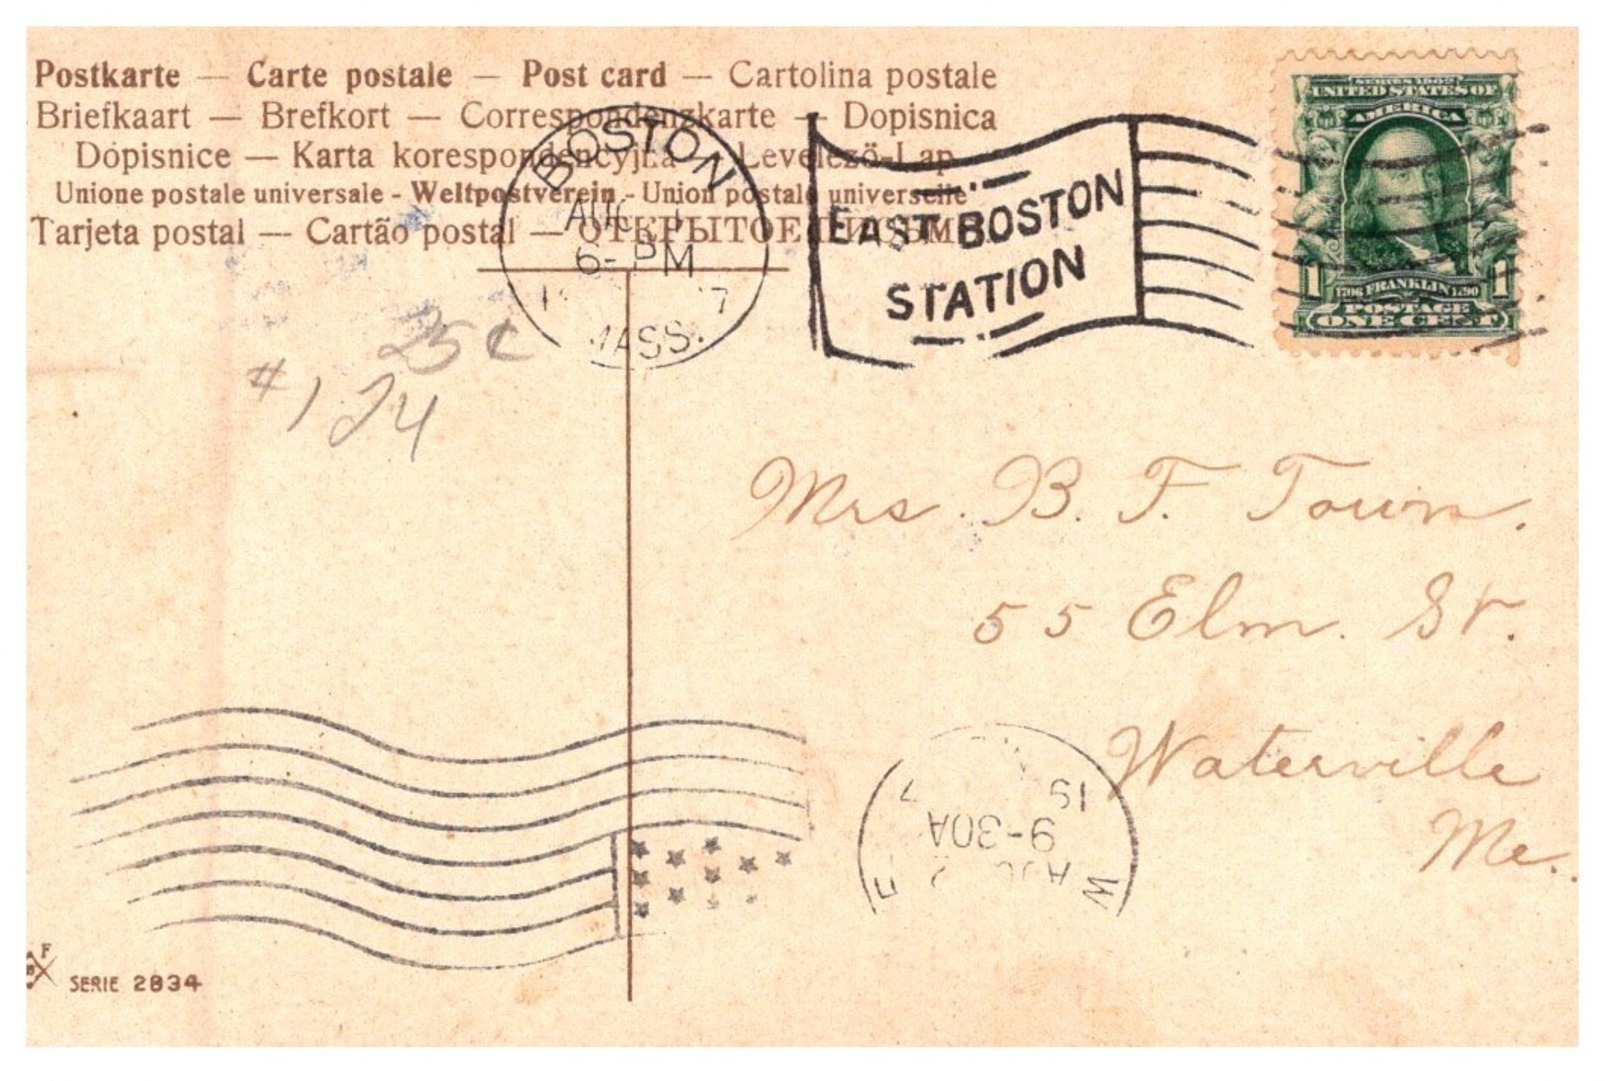 Postkarte — Carte postale — Post card — Cartolina postale
Briefkaart — Brefkort — Correspondenzkarte — Dopisnica
Dopisnice — Karta korespondencyjna — Levelező-Lap
Unione postale universale - Weltpostverein - Union postale universelle
Tarjeta postal — Cartão postal — ОТКРЫТОЕ ПИСЬМО
BOSTON
AUG 1
6-PM
MASS.
EAST BOSTON
STATION
SERIES 1902
UNITED STATES OF
AMERICA
1 1706 FRANKLIN 1790 1
POSTAGE
ONE CENT
25¢
#124
Mrs. B. F. Town.
55 Elm. St.
Waterville
Me.
AUG 2
9-30A
19 7
SERIE 2834